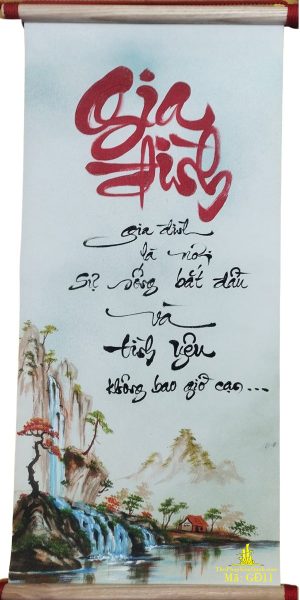 gia
đình
gia đình
là nơi
Sự sống bắt đầu
và
tình yêu
không bao giờ cạn...
Mã: GĐ11